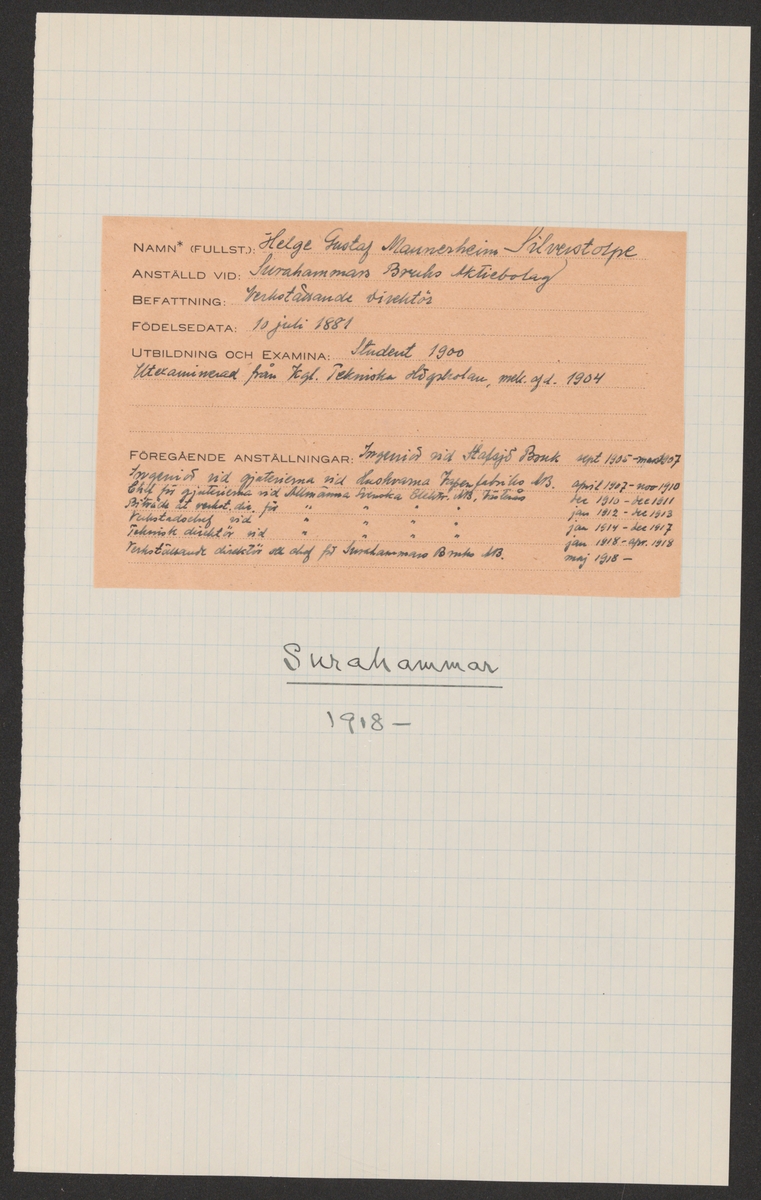 NAMN* (FULLST.): Helge Gustaf Mannerheim Silverstolpe
ANSTÄLLD VID: Surahammars Bruks Aktiebolag
BEFATTNING: Verkställande direktör
FÖDELSEDATA: 10 juli 1881
UTBILDNING OCH EXAMINA: Student 1900
Utexaminerad från Kgl. Tekniska Högskolan, mek. afd. 1904
FÖREGÅENDE ANSTÄLLNINGAR: Ingeniör vid Hafsjö Bruk sept 1905 - mars 1907
Ingeniör vid gjuterierna vid Huskvarna Vapenfabriks AB. april 1907 - nov 1910
Chef för gjuterierna vid Allmänna Svenska Elektr. AB, Västerås dec 1910 - dec 1911
Biträde åt verkst. dir. för " " " " jan 1912 - dec 1913
Verkstadschef vid " " " " jan 1914 - dec 1917
Teknisk direktör vid " " " " jan 1918 - apr. 1918
Verkställande direktör och chef för Surahammars Bruks AB. maj 1918 -
Surahammar
1918 -